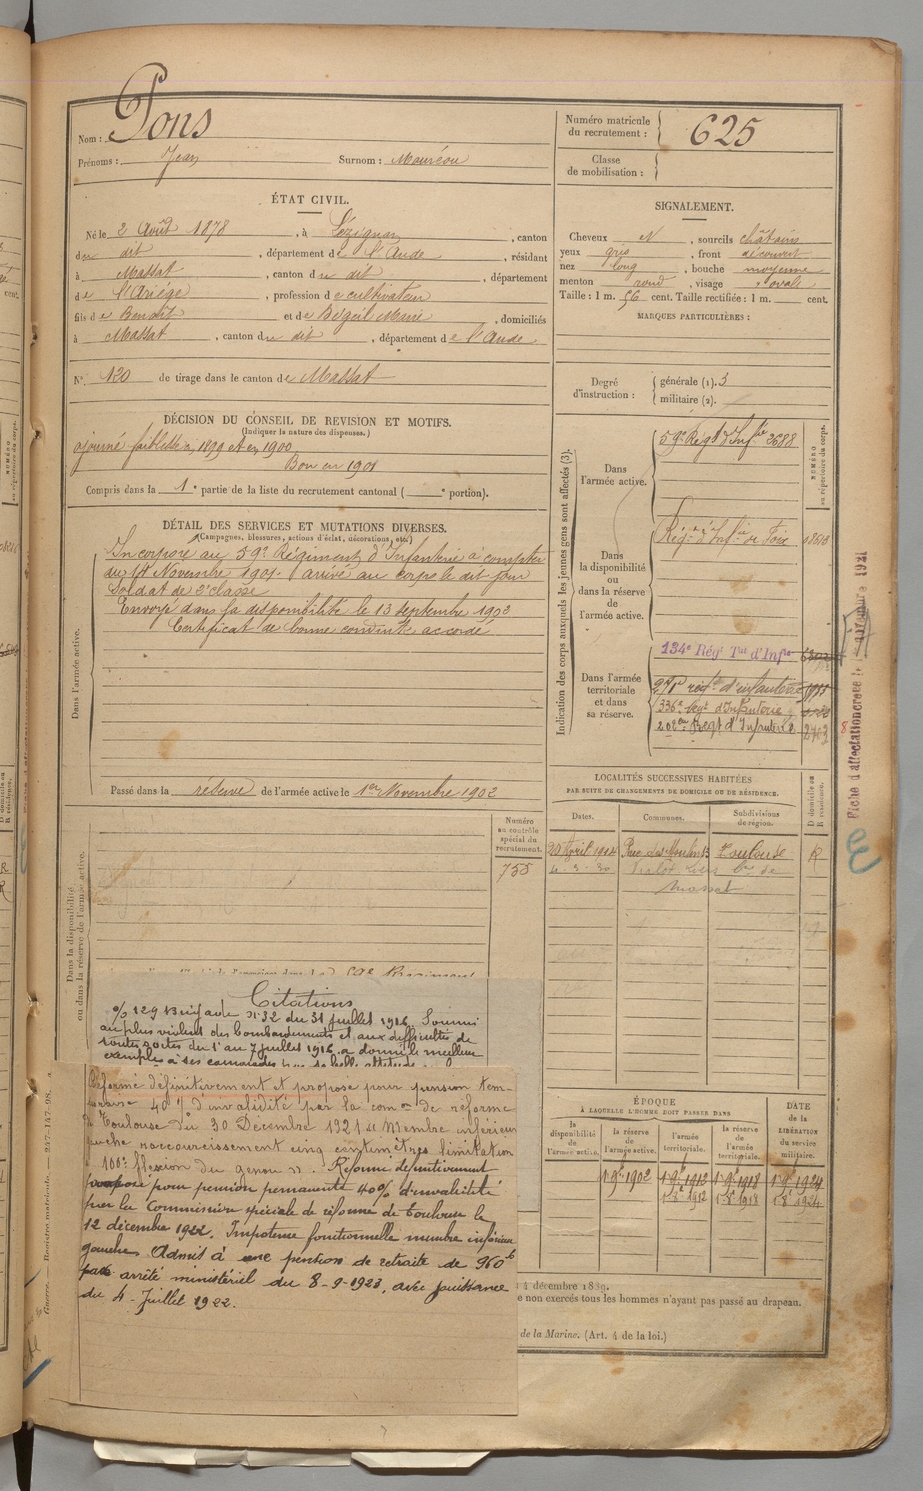 Nom : Pons
Prénoms : Jean Surnom : Mouréou
Numéro matricule
du recrutement : 625
Classe
de mobilisation :
ÉTAT CIVIL.
Né le 2 Août 1878, à Lézignan, canton
du dit, département de l'Aude, résidant
à Massat, canton du dit, département
de l'Ariège, profession de cultivateur
fils de Benoît et de Dégeil Marie, domiciliés
à Massat, canton du dit, département de l'Aude
N° 120 de tirage dans le canton de Massat
SIGNALEMENT.
Cheveux N, sourcils châtains
yeux gris, front découvert
nez long, bouche moyenne
menton rond, visage ovale
Taille : 1 m. 56 cent. Taille rectifiée : 1 m. cent.
MARQUES PARTICULIÈRES :
Degré
d'instruction :
générale (1). 3
militaire (2).
DÉCISION DU CONSEIL DE REVISION ET MOTIFS.
(Indiquer la nature des dispenses.)
ajourné faiblesse en 1899 et en 1900
Bon en 1901
Compris dans la 1e partie de la liste du recrutement cantonal ( e portion).
DÉTAIL DES SERVICES ET MUTATIONS DIVERSES.
(Campagnes, blessures, actions d'éclat, décorations, etc.)
Dans l'armée active.
Incorporé au 59e Régiment d'Infanterie à compter
du 14 Novembre 1901. arrivé au corps le dit jour
Soldat de 2e classe
Envoyé dans la disponibilité le 13 septembre 1902
Certificat de bonne conduite accordé
Passé dans la réserve de l'armée active le 1er Novembre 1902
Indication des corps auxquels les jeunes gens sont affectés (3).
NUMÉRO
au répertoire du corps.
Dans
l'armée active.
59e Régt d'Infie 2688
Dans
la disponibilité
ou
dans la réserve
de
l'armée active.
Régt d'Infie de Foix
Dans l'armée
territoriale
et dans
sa réserve.
134e Régt Tal d'Infie
336e Regt d'Infanterie
202e Regt d'Infanterie
LOCALITÉS SUCCESSIVES HABITÉES
PAR SUITE DE CHANGEMENTS DE DOMICILE OU DE RÉSIDENCE.
Dates. Communes. Subdivisions
de région.
D domicile ou
R résidence.
20 Avril 1914 Toulouse R
Massat
Dans la disponibilité
ou dans la réserve de l'armée active.
Numéro
au contrôle
spécial du
recrutement.
755
Citations
o/ 129 Brigade N° 32 du 31 juillet 1916. Soumis
au plus violent des bombardements et aux difficultés de
toutes sortes du 1e au 7 juillet 1916 a donné le meilleur
exemple à ses camarades par sa belle attitude
Réformé définitivement et proposé pour pension tem-
poraire 40% d'invalidité par la comon de réforme
de Toulouse du 30 Décembre 1921 Membre inférieur
gauche raccourcissement cinq centimètres limitation
à 100° flexion du genou ". Réformé définitivement
proposé pour pension permanente 40% d'invalidité
par la Commission spéciale de réforme de Toulouse le
12 décembre 1922. Impotence fonctionnelle membre inférieur
gauche. Admis à une pension de retraite de 960f
par arrêté ministériel du 8-9-1923, avec jouissance
du 4 Juillet 1922.
ÉPOQUE
À LAQUELLE L'HOMME DOIT PASSER DANS
la
disponibilité
de
l'armée active.
la réserve
de
l'armée active.
l'armée
territoriale.
la réserve
de
l'armée
territoriale.
DATE
de la
LIBÉRATION
du service
militaire.
1 9e 1902 1 9e 1912 1 9e 1918 1 9e 1924
1 8e 1912 1 8e 1918 1 8e 1924
4 décembre 1889.
e non exercés tous les hommes n'ayant pas passé au drapeau.
de la Marine. (Art. 4 de la loi.)